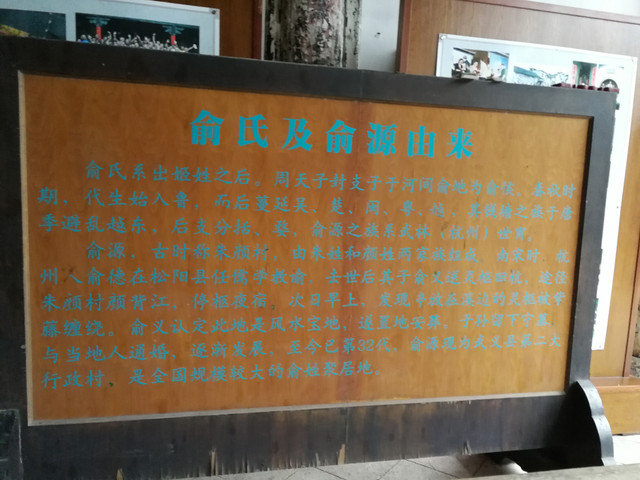 俞氏及俞源由来
俞氏系出姬姓之后，周天子封支子于河间俞地为俞侯，春秋时
期，代生始入晋，而后蔓延吴、楚、闽、粤、
季避乱越东，后支分括、婺，俞源之族系武林（杭州）世胄。
俞源，古时称朱颜村，由朱姓和颜姓两家族组成，南宋时，杭
州人俞德在松阳县任儒学教谕，去世后其子俞义送灵柩回杭，途经
朱颜村颜背江，停柩夜宿，次日早上，发现灵柩被
藤缠绕。俞义认定此地是风水宝地，遂置地安葬，子孙留下守墓，
与当地人通婚，逐渐发展，至今已第32代，俞源现为武义县第二大
行政村，是全国规模较大的俞姓聚居地。